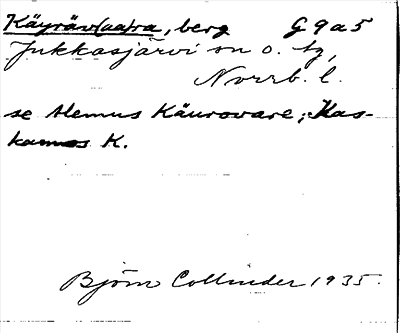 Käyräv(aa)ra, berg G 9 a 5
Jukkasjärvi sn o. tg,
Norrb. l.
se Alemus Käurovare; Kas-
kamos K.
Björn Collinder 1935.